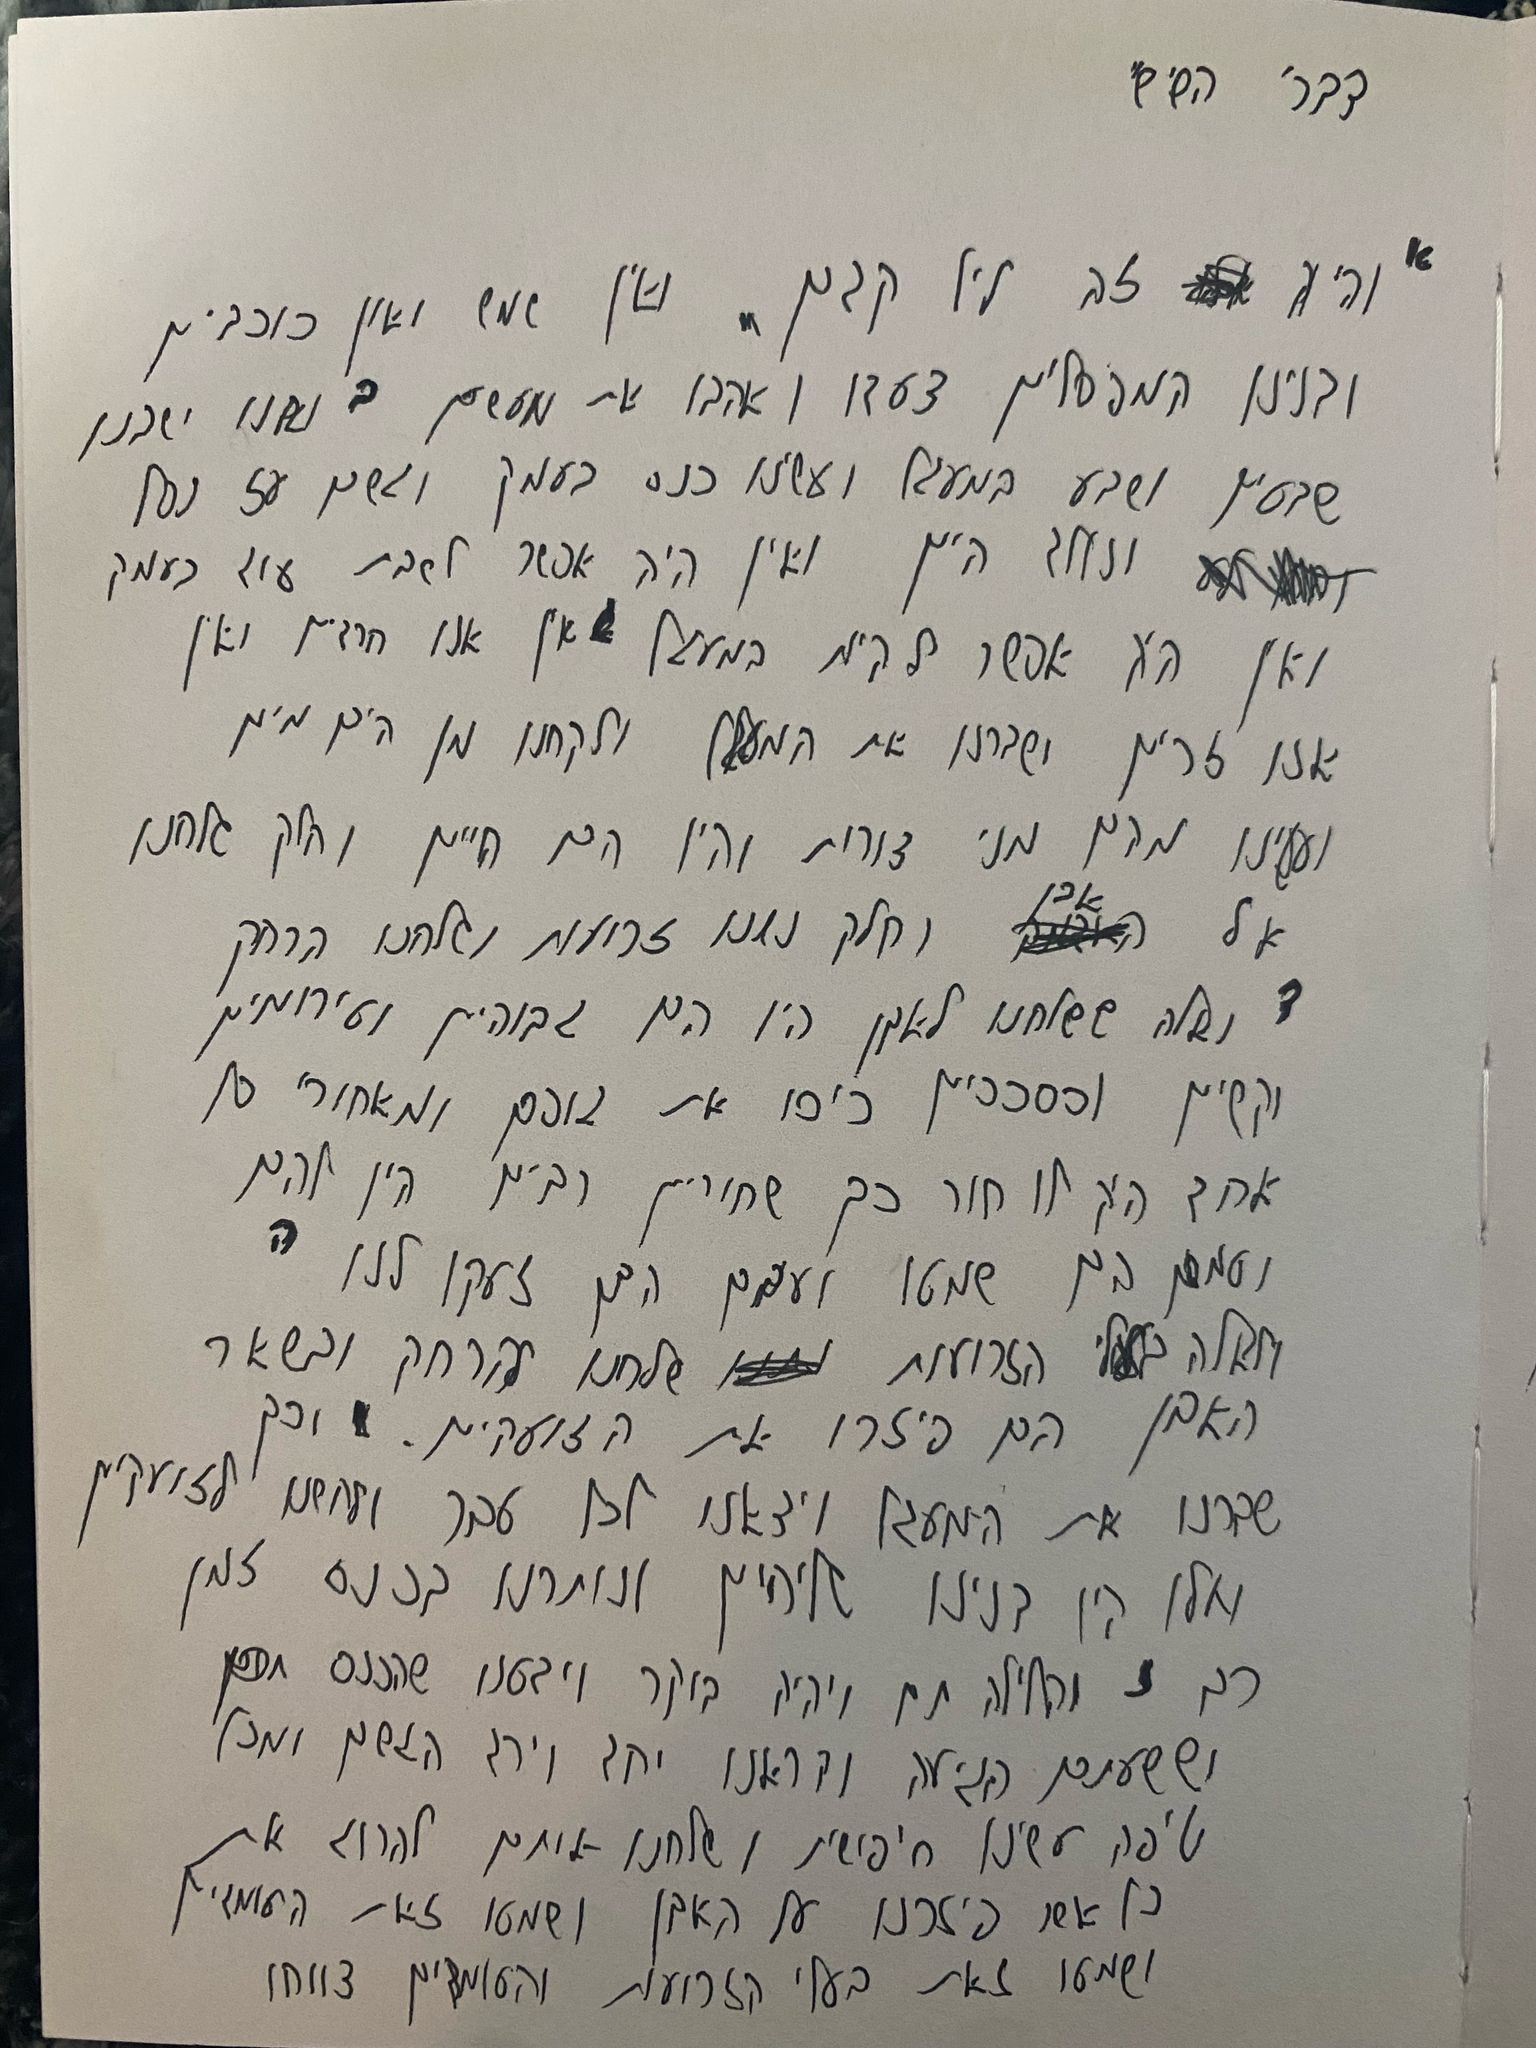 דברי הש"ש
א והיה זה ליל קדם ואין שמש ואין כוכבים
ובנינו המפסלים צעדו ואהבו את מעשם ב ואנו ישבנו
שבטים ושבע במעגל ועשינו כנס בעמק וגשם עז נפל
ונולד הים ואין היה אפשר לשבת עוד בעמק
ואין היה אפשר להיות במעגל אין אנו חרדים ואין
אנו זרים ושברנו את המעגל ולקחנו מן הים מים
ועשינו מהם מני צורות והיו הם חיים וחלק שלחנו
אל אבן וחלק נתנו זרועות ושלחנו הרחק
ד ואלה ששלחנו לאבן היו הם גבוהים ועירומים
וקשים וכסככים כיסו את גופם ומאחורי כל
אחד היה לו חור כך שחורים רבים היו להם
הם שמטו ועצמם הם זעקו לנו ה
ולאלה בעלי הזרועות שלחנו להרחק ובשאר
האבן הם פיזרו את הזועקים. וכך
שברנו את המעגל ויצאנו לכל עבר ולחשנו לזועקים
ואלו היו בנינו שליחים ונותרנו בכנס זמן
רב והלילה תם ויהיה בוקר ויבטנו שהכנס
וששעתם הגיעה וקראנו יחד וירד הגשם ומכל
טיפה עשינו חיפושית ושלחנו אותם להרוג את
כל אשר פיזרנו על האבן ושמטו זאת העומדים
ושמטו זאת בעלי הזרועות והעומדים צווחו